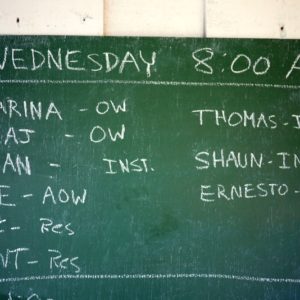 WEDNESDAY 8:00 A
ARINA - OW
AJ - OW
AN - INST.
E - AOW
- Res
NT - Res
THOMAS - I
SHAUN - IN
ERNESTO -